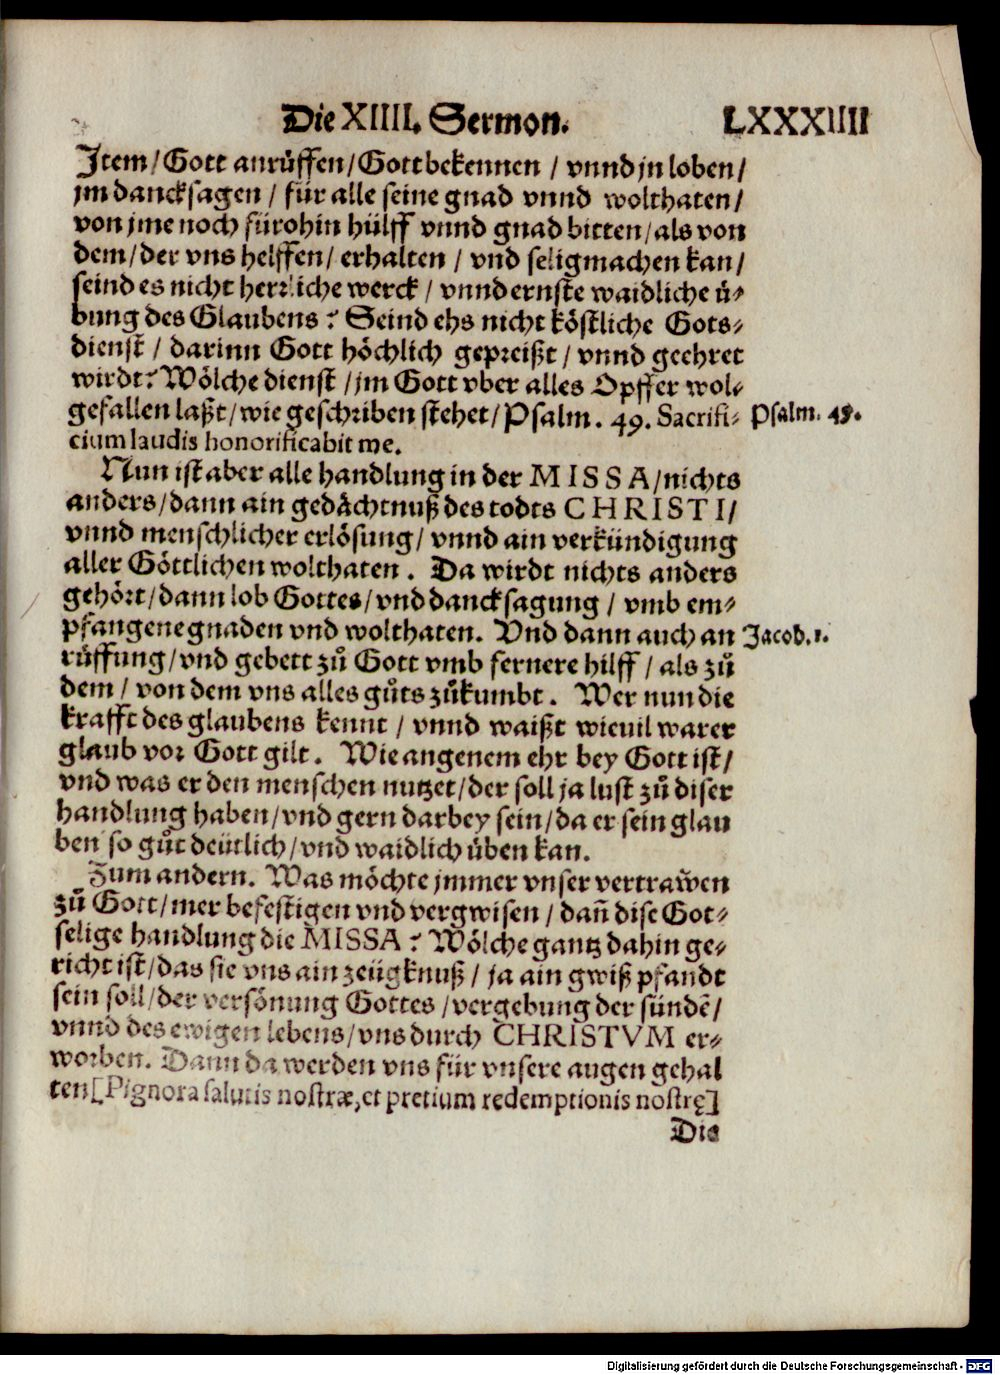 Die XIIII. Sermon. LXXXIIII
Jtem/Gott anrüffen/Gott bekennen / vnnd jn loben/
jm dancksagen / für alle seine gnad vnnd wolthaten/
von jme noch fürohin hülff vnnd gnad bitten/als von
dem/der vns helffen/ erhalten / vnd seligmachen kan/
seind es nicht herrliche werck / vnnd ernste waidliche ü-
bung des Glaubens? Seind ehs nicht köstliche Gots-
dienst / darinn Gott höchlich gepreißt / vnnd geehret
wirdt? Wölche dienst /jm Gott vber alles Opffer wol-
gefallen laßt/wie geschriben stehet/Psalm. 49. Sacrifi- Psalm. 49.
cium laudis honorificabit me.
Nun ist aber alle handlung in der MISSA/nichts
anders/dann ain gedåchtnuß des todts CHRISTI/
vnnd menschlicher erlösung/ vnnd ain verkündigung
aller Göttlichen wolthaten. Da wirdt nichts anders
gehört/dann lob Gottes/vnd dancksagung / vmb em-
pfangene gnaden vnd wolthaten. Vnd dann auch an Jacob.1.
rüffung/vnd gebett zů Gott vmb fernere hilff / als zů
dem/ von dem vns alles gůts zůkumbt. Wer nun die
krafft des glaubens kennt / vnnd waißt wieuil warer
glaub vor Gott gilt. Wie angenem ehr bey Gott ist/
vnd was er den menschen nutzet/der soll ja lust zů diser
handlung haben/vnd gern darbey sein/da er sein glau
ben so gůt deütlich/vnd waidlich üben kan.
Zum andern. Was möchte jmmer vnser vertrawen
zů Gott/mer befestigen vnd vergwisen / dañ dise Got-
selige handlung die MISSA? Wölche gantz dahin ge-
richt ist/das sie vns ain zeügknuß / ja ain gwiß pfandt
sein soll/der versönung Gottes /vergebung der sündẽ/
vnnd des ewigen lebens/vns durch CHRISTVM er-
worben. Dann da werden vns für vnsere augen gehal
ten[Pignora salutis nostræ,et pretium redemptionis nostrę]
Die
Digitalisierung gefördert durch die Deutsche Forschungsgemeinschaft - DFG